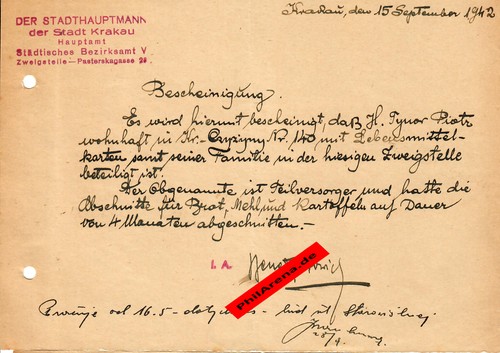 DER STADTHAUPTMANN
der Stadt Krakau
Hauptamt
Städtisches Bezirksamt V
Zweigstelle - Pasterskagasse 28.
Krakau, den 15 September 1942
Bescheinigung.
Es wird hiermit bescheinigt, daß H. Tynor Piotr
wohnhaft in Kr.-Czyżyny Nr. 140 mit Lebensmittel-
karten samt seiner Familie in der hiesigen Zweigstelle
beteiligt ist.
Der Obgenannte ist Teilversorger und hatte die
Abschnitte für Brot, Mehl und Kartoffeln auf Dauer
von 4 Monaten abgeschnitten.-
I.A.
PhilArena.de
od 16.5 -